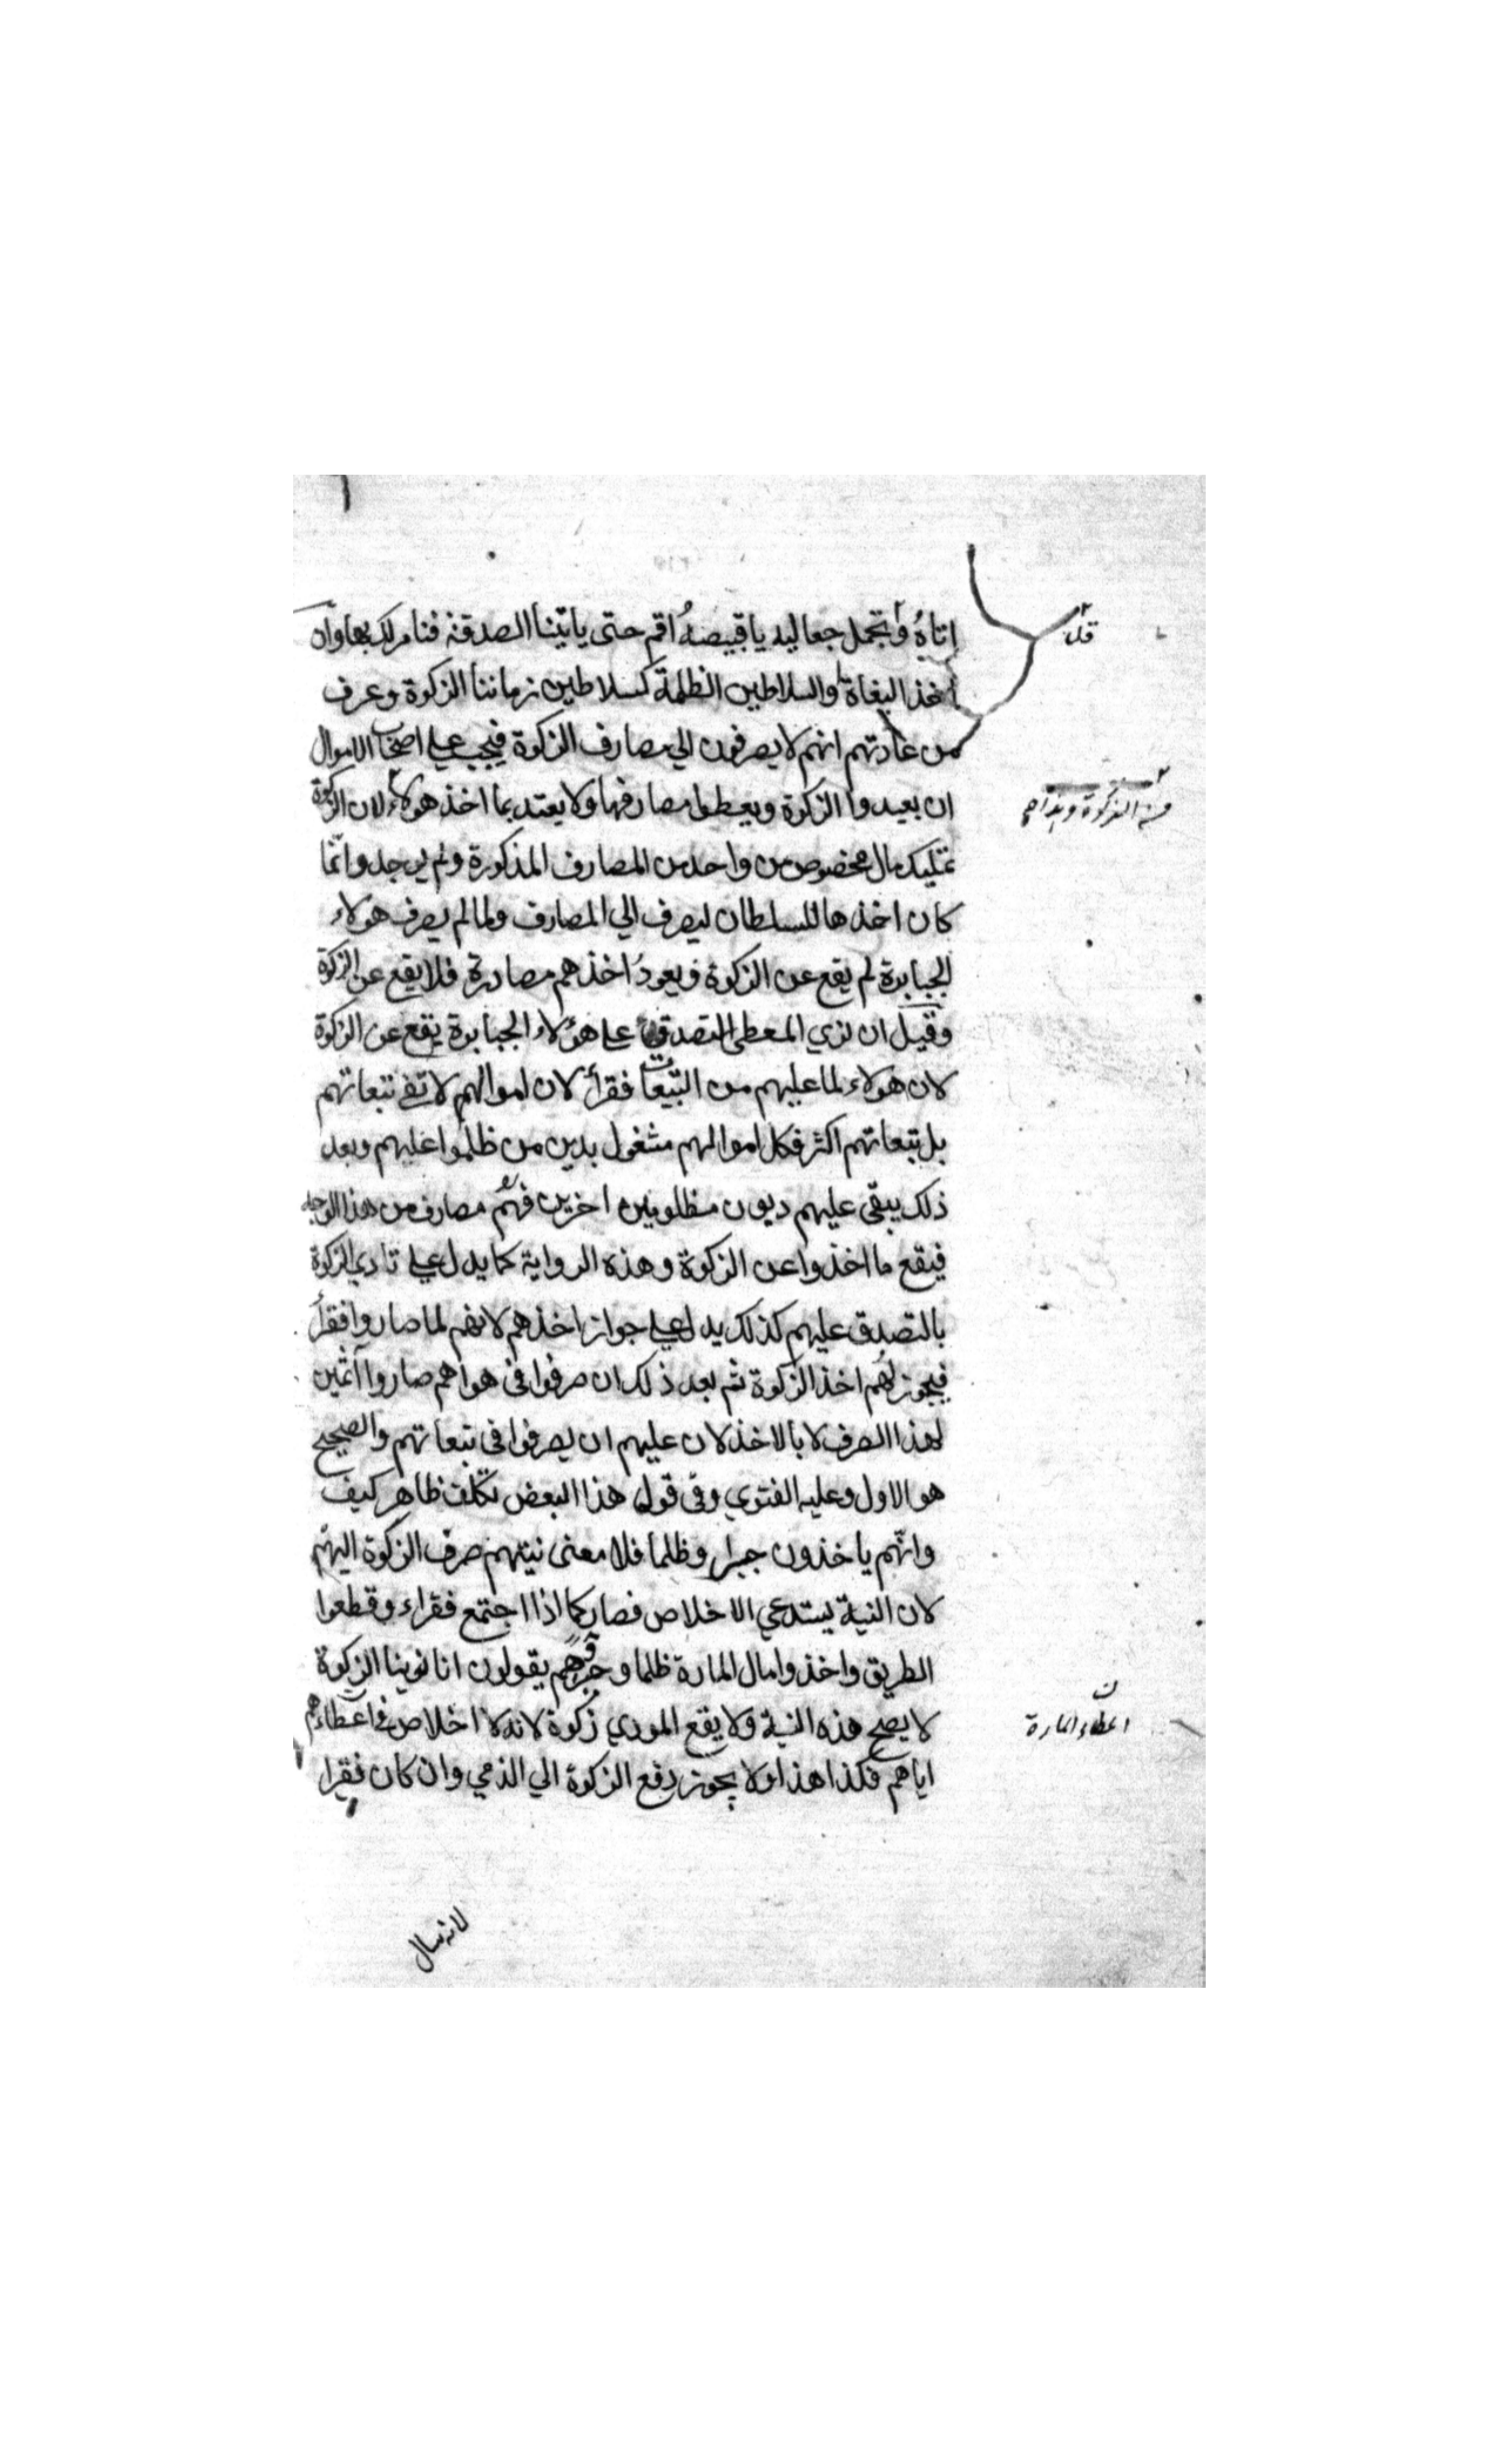 اتاهُ وتجمل جعاليه ياقبيصهُ اقم حتى ياتينا الصدقة فنامر لك بها وان
اخذ البغاة والسلاطين الظلمة كسلاطين زماننا الزكوة وعرف
من عادتهم انهم لا يصرفون الي مصارف الزكوة فيجب علي اصحاب الاموال
ان يعيدوا الزكوة ويعطوا مصارفها ولا يعتد بما اخذ هولاء لان الزكوة
تمليك مال مخصوص من واحد من المصارف المذكورة ولم يوجد وانما
كان اخذها للسلطان ليصرف الي المصارف ولما لم يصرف هولاء
الجبابرة لم يقع عن الزكوة ويعود اخذهم مصادرة فلا يقع عن الزكوة
وقيل ان نوي المعطي التصدق علي هؤلاء الجبابرة يقع عن الزكوة
لان هولاء لما عليهم من التبعات فقراء لان اموالهم لا تفي تبعاتهم
بل تبعاتهم اكثر فكل اموالهم مشغول بدين من ظلموا عليهم وبعد
ذلك يبقي عليهم ديون مظلومين اخرين فهم مصارف من هذا الوجه
فيقع ما اخذوا عن الزكوة وهذه الرواية كما يدل علي تادي الزكوة
بالتصدق عليهم كذلك يدل علي جواز اخذهم لانهم لما صاروا فقراء
فيجوز لهم اخذ الزكوة ثم بعد ذلك ان صرفوا في هواهم صاروا آثمين
لهذا الصرف لا بالاخذ لان عليهم ان يصرفوا في تبعاتهم والصحيح
هو الاول وعليه الفتوي وفي قول هذا البعض تكلف ظاهر كيف
وانهم ياخذون جبرا وظلما فلا معنى نيتهم صرف الزكوة اليهم
لان النية يستدعي الاخلاص فصار كما اذا اجتمع فقراء وقطعوا
الطريق واخذوا مال المارة ظلما وهم يقولون انا نوينا الزكوة
لا يصح هذه النية ولا يقع المودي زكوة لانه لا اخلاص في اعطاءهم
اياهم فكذا هذا ولا يجوز دفع الزكوة الي الذمي وان كان فقيرا
اعطاء المارة
لانه سال